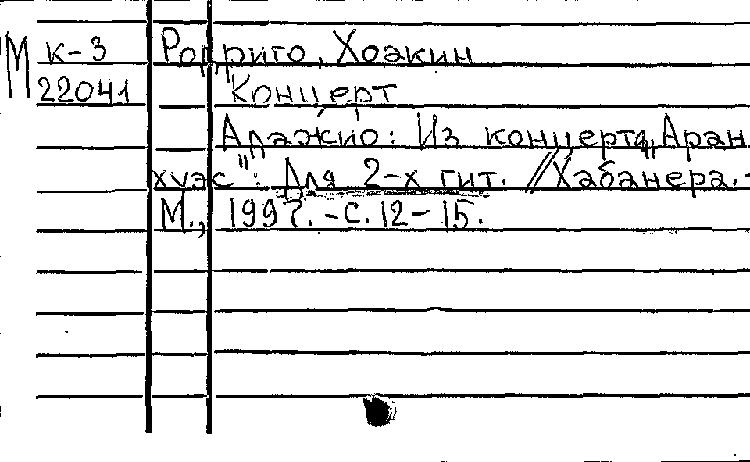 М К-3 Родриго, Хоакин
22041 Концерт
Адажио: Из концерта „Аран
хуэс": Для 2-х гит. // Хабанера. -
М., 1997. - С. 12-15.